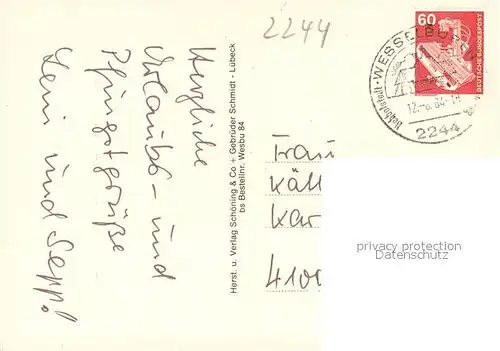 2244
Herzliche
Urlaubs- und
Pfingstgrüße
Leni und Sepp!
Herst. u. Verlag Schöning & Co + Gebrüder Schmidt - Lübeck
bs Bestellnr. Wesbu 84
60
DEUTSCHE BUNDESPOST
WESSELBUREN
2244
Käl
Kar
privacy protection
watermark ANSICHTSKARTEN